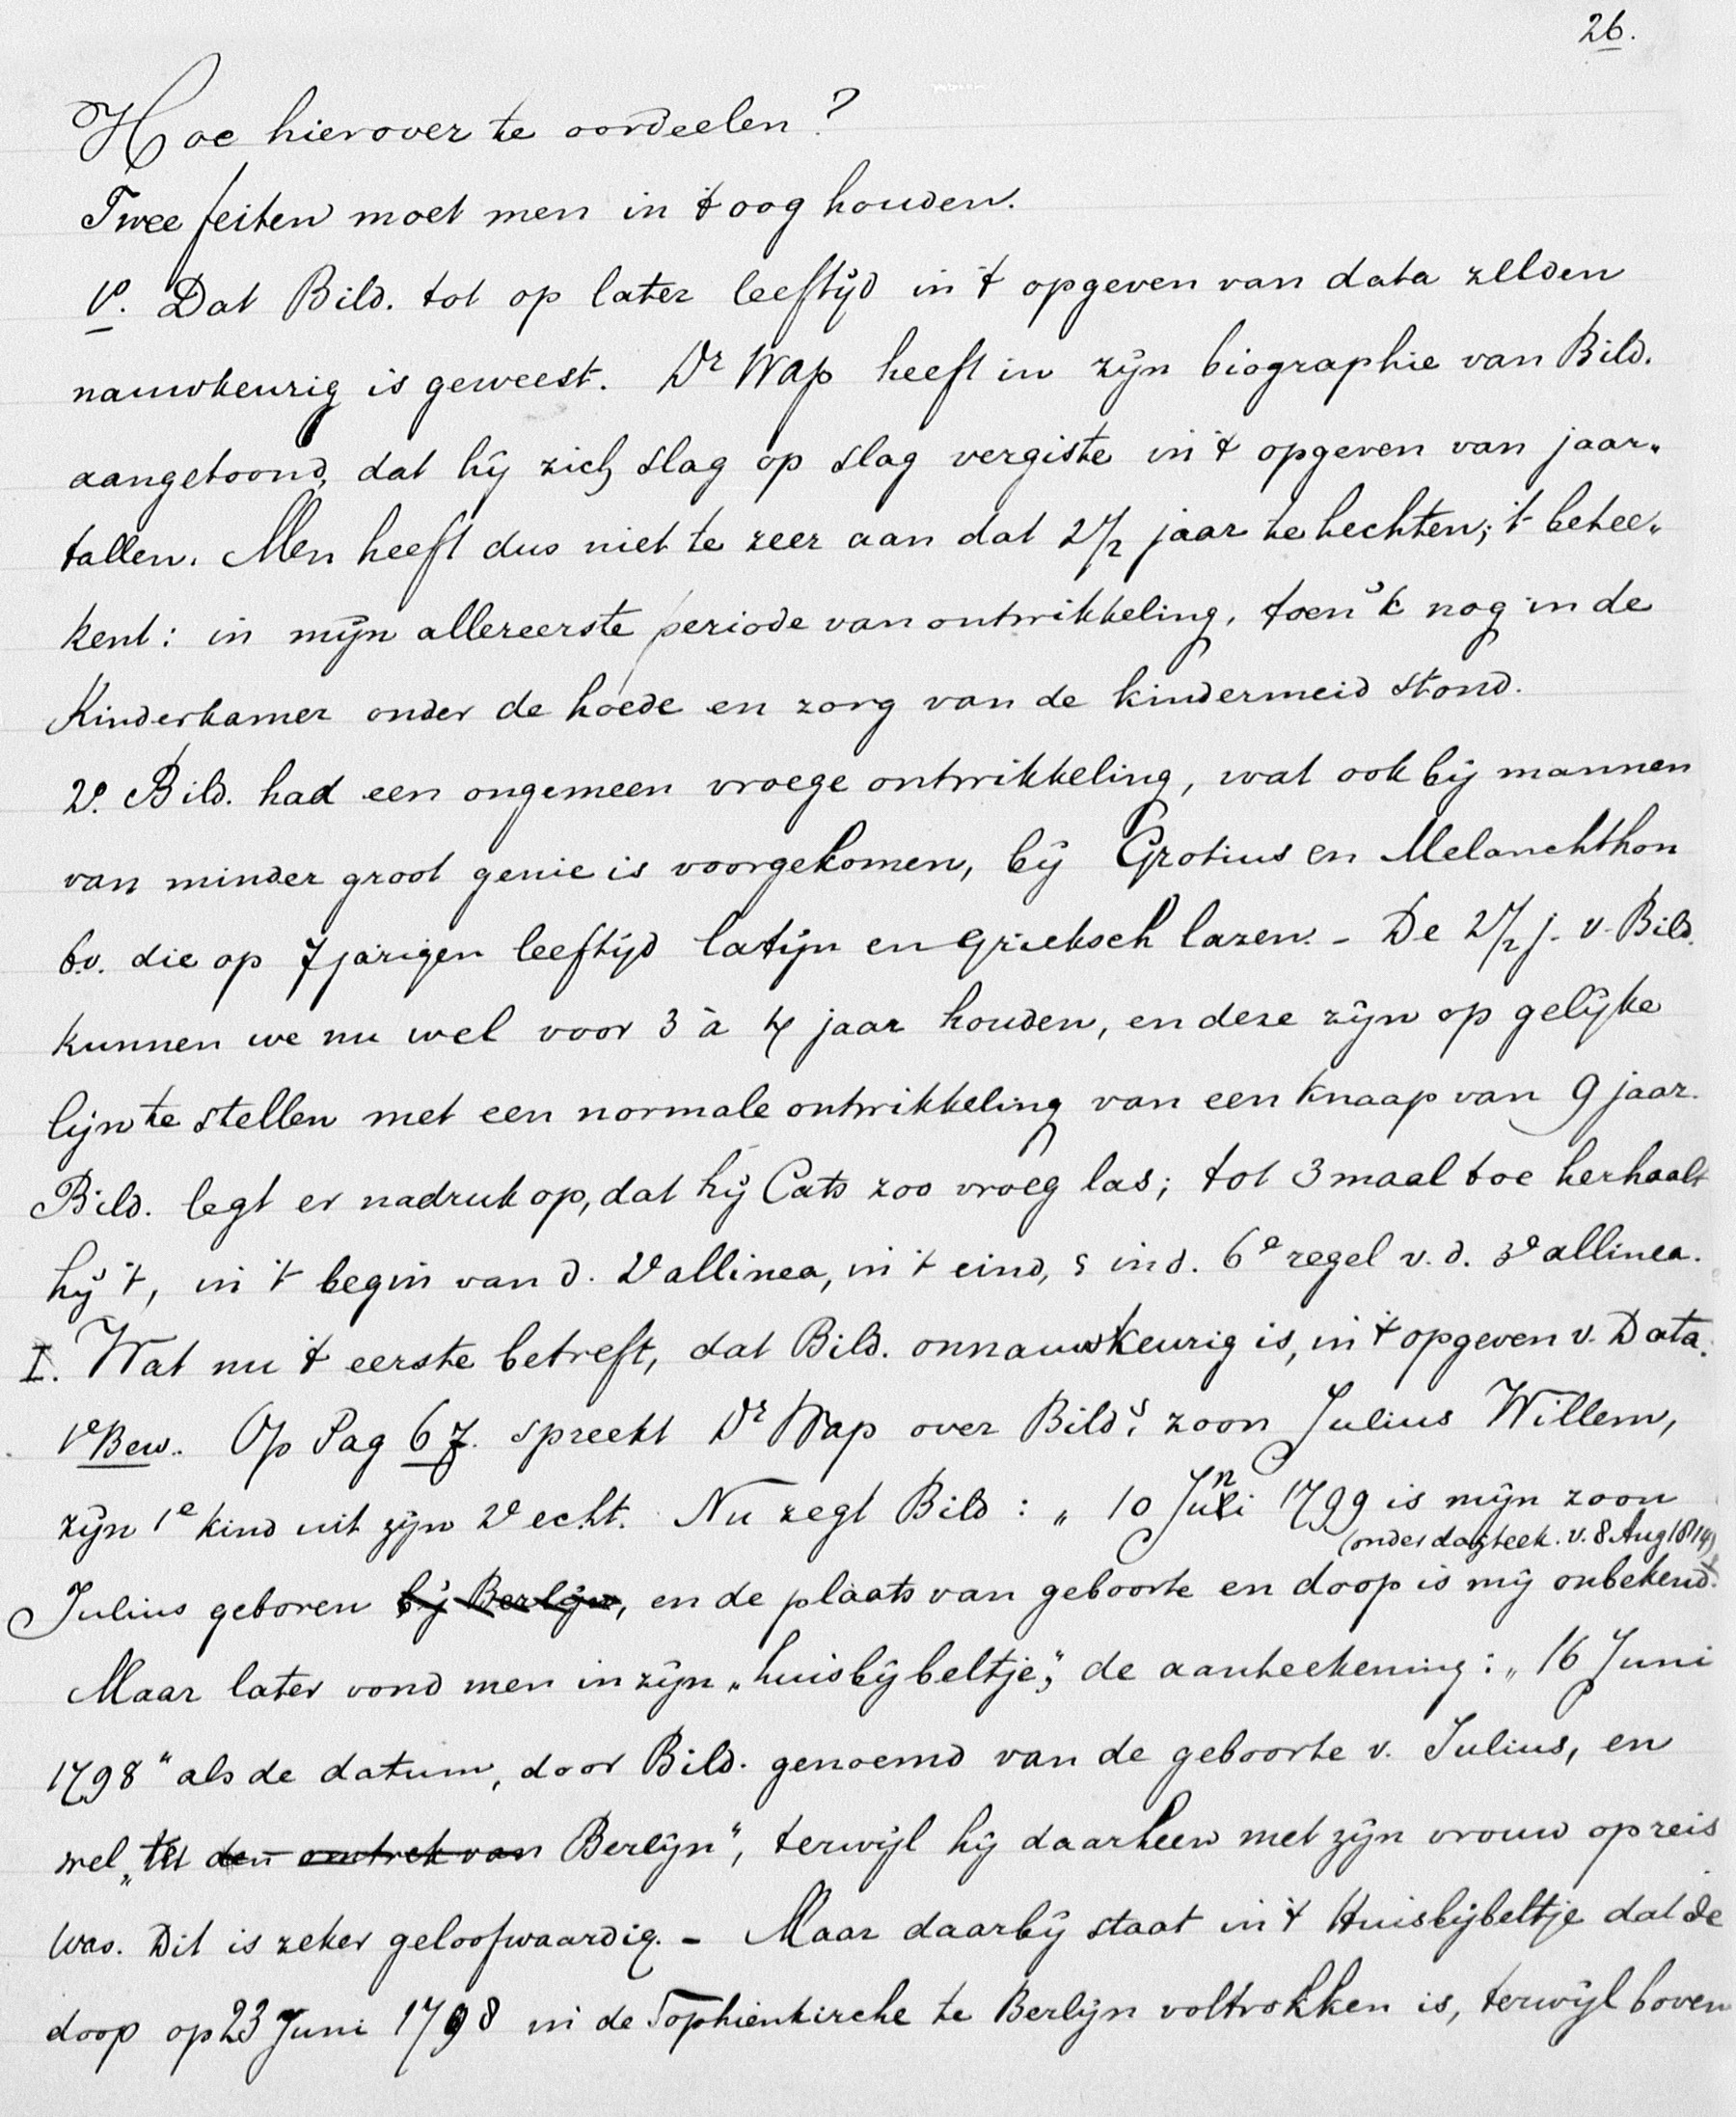 26.
Hoe hierover te oordeelen?
Twee feiten moet men in 't oog houden.
1º. Dat Bild. tot op later leeftijd in 't opgeven van data zelden
nauwkeurig is geweest. Dr Wap heeft in zijn biographie van Bild.
aangetoond, dat hij zich slag op slag vergiste in 't opgeven van jaar„
tallen. Men heeft dus niet te zeer aan dat 1½ jaar te hechten; 't betee„
kent: in mijn allereerste periode van ontwikkeling, toen 'k nog in de
Kinderkamer onder de hoede en zorg van de kindermeid stond.
2º. Bild. had een ongemeen vroege ontwikkeling, wat ook bij mannen
van minder groot genie is voorgekomen, bij Grotius en Melanchthon
b.v. die op 7 jarigen leeftijd latijn en grieksch lazen. - De 1½ j. v. Bild.
kunnen we nu wel voor 3 à 4 jaar houden, en deze zijn op gelijke
lijn te stellen met een normale ontwikkeling van een knaap van 9 jaar.
Bild. legt er nadruk op, dat hij Cats zoo vroeg las; tot 3 maal toe herhaalt
hij 't, in 't begin van d. 2e allinea, in 't eind, & in d. 6e regel v. d. 3e allinea.
I. Wat nu 't eerste betreft, dat Bild. onnauwkeurig is, in 't opgeven v. Data.
1e Bew. Op Pag 67. spreekt Dr Wap over Bild's. zoon Julius Willem,
zijn 1e kind uit zijn 2e echt. Nu zegt Bild: „ 10 Juni 1799 is mijn zoon
(onder dagteek. v. 8 Aug 1814)
Julius geboren bij Berlijn, en de plaats van geboorte en doop is mij onbekend."
Maar later vond men in zijn „huisbijbeltje", de aanteekening: „ 16 Juni
1798" als de datum, door Bild. genoemd van de geboorte v. Julius, en
wel „tit den omtrek van Berlijn", terwijl hij daarheen met zijn vrouw op reis
was. Dit is zeker geloofwaardig. - Maar daarbij staat in 't Huisbijbeltje dat de
doop op 23 Juni 1798 in de Sophienkirche te Berlijn voltrokken is, terwijl boven